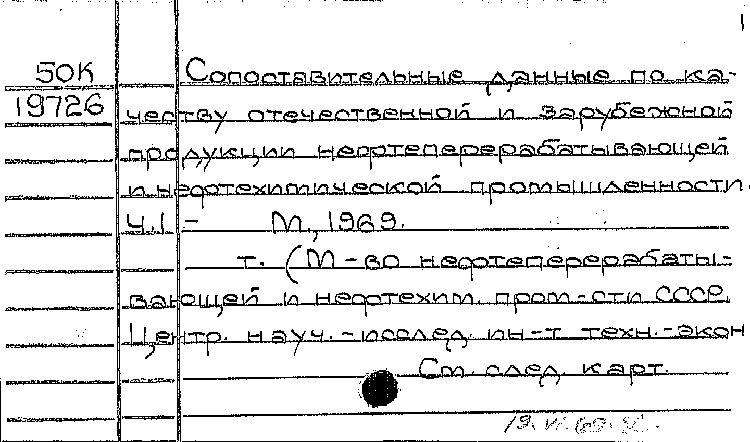 1
50К
19726
Сопоставительные данные по ка-
честву отечественной и зарубежной
продукции нефтеперерабатывающей
и нефтехимической промышленности.
Ч.1 - М., 1969.
т. (М-во нефтеперерабаты-
вающей и нефтехим. пром-сти СССР.
Центр. науч.-исслед. ин-т техн.-экон
См. след. карт.
19.VI.69.